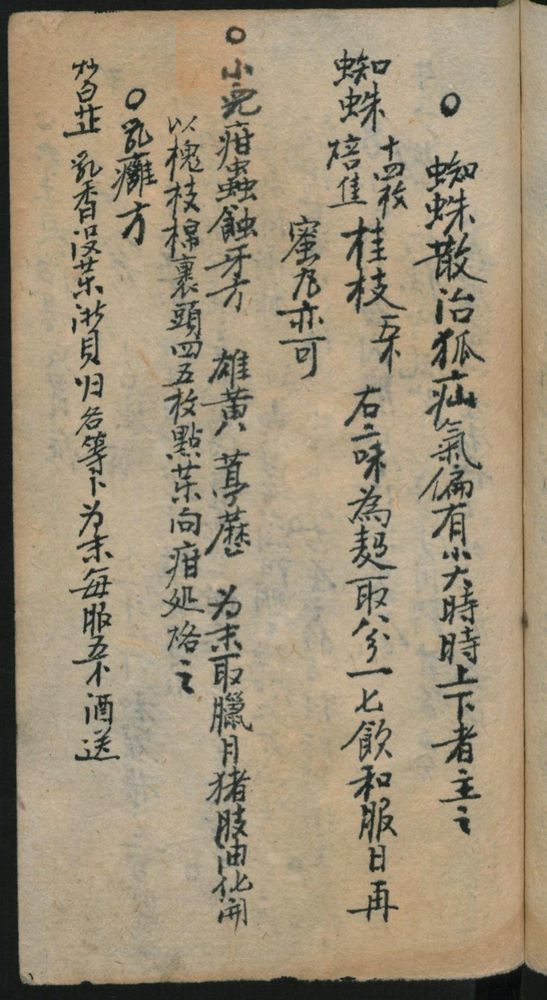 ○ 蜘蛛散治狐疝氣偏有小大時時上下者主之
蜘蛛十四枚焙焦 桂枝五分 右二味為麪取八分一匕飲和服日再
蜜丸亦可
○小兒疳蟲蝕牙方 雄黃 葶藶 为末取臘月猪肢油化開
以槐枝棉裹頭四五枚點藥向疳処烙之
○乳癰方
炒白芷 乳香 没藥 浙貝 归 各等卜为末每服五分酒送